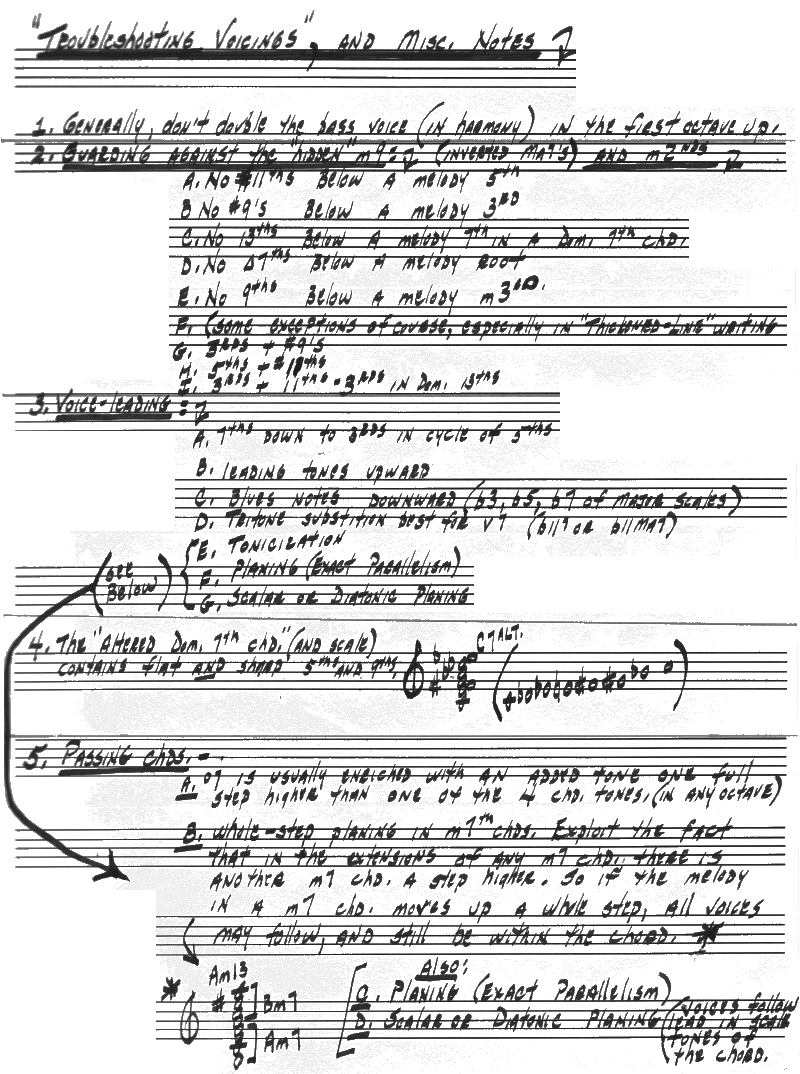 "Troubleshooting Voicings", and Misc. Notes
1. Generally, don't double the bass voice (in harmony) in the first octave up.
2. Guarding against the "hidden" m9: (inverted Ma7's) and m2nds
A. No #11ths below a melody 5th
B No #9's below a melody 3rd
C. No 13ths below a melody 7th in a Dom. 7th chd.
D. No Δ7ths below a melody root
E. No 9ths below a melody m3rd.
F. (some exceptions of course, especially in "Thickened-Line" writing
G. 3rds + #9's
H. 5ths + #11ths
I. 3rds + 11ths - 3rds in Dom. 13ths
3. Voice-leading:
A. 7ths down to 3rds in cycle of 5ths
B. leading tones upward
C. Blues notes downward (b3, b5, b7 of major scales)
D. Tritone substition best for V7 (bII7 or bIIMA7)
(see Below)
E. Tonicization
F. Planing (Exact Parallelism)
G. Scalar or Diatonic Planing
4. The "Altered Dom. 7th chd." (and scale)
contains flat and sharp 5ths and 9ths,
C7ALT.
5. Passing chds. -
A. o7 is usually enriched with an added tone one full
step higher than one of the 4 chd. tones. (in any octave)
B. Whole-step planing in m7th chds. Exploit the fact
that in the extensions of any m7 chd. there is
another m7 chd. a step higher. So if the melody
in a m7 chd. moves up a whole step, all voices
may follow, and still be within the chord. *
Am13
* Bm7
Am7
Also:
C. Planing (Exact Parallelism)
D. Scalar or Diatonic Planing (voices follow
lead in scale
tones of
the chord.